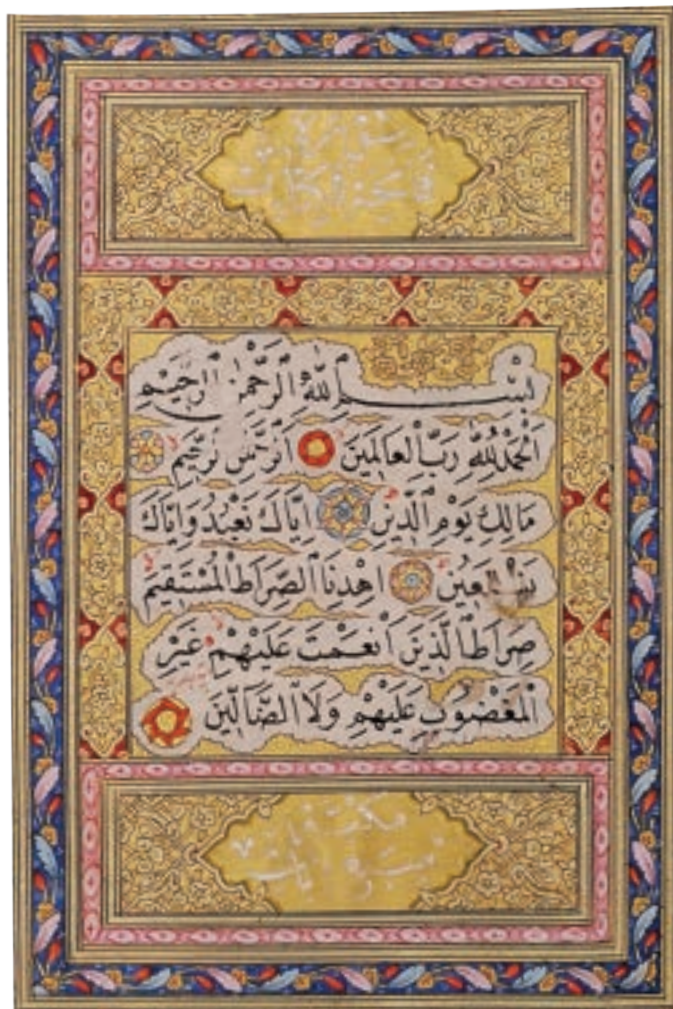 بِسْمِ ٱللّٰهِ ٱلرَّحْمٰنِ ٱلرَّحِيْمِ
اَلْحَمْدُ لِلّٰهِ رَبِّ الْعَالَمِيْنَ اَلرَّحْمٰنِ الرَّحِيْمِ
مَالِكِ يَوْمِ ٱلدِّيْنِ اِيَّاكَ نَعْبُدُ وَاِيَّاكَ
نَسْتَعِيْنُ اِهْدِنَا ٱلصِّرَاطَ الْمُسْتَقِيْمَ
صِرَاطَ ٱلَّذِيْنَ اَنْعَمْتَ عَلَيْهِمْ غَيْرِ
الْمَغْضُوبِ عَلَيْهِمْ وَلَا ٱلضَّالِّيْنَ